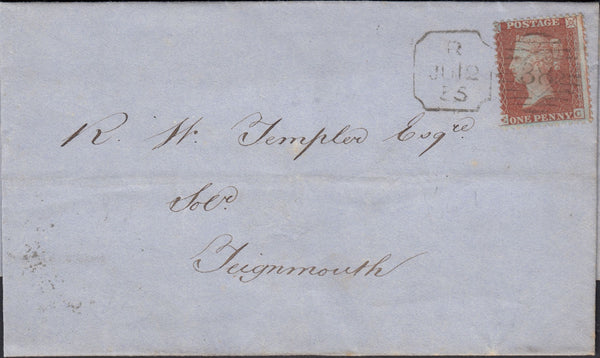 POSTAGE
ONE PENNY
R
JU 12
R. W. Templer Esqre
Solr
Teignmouth